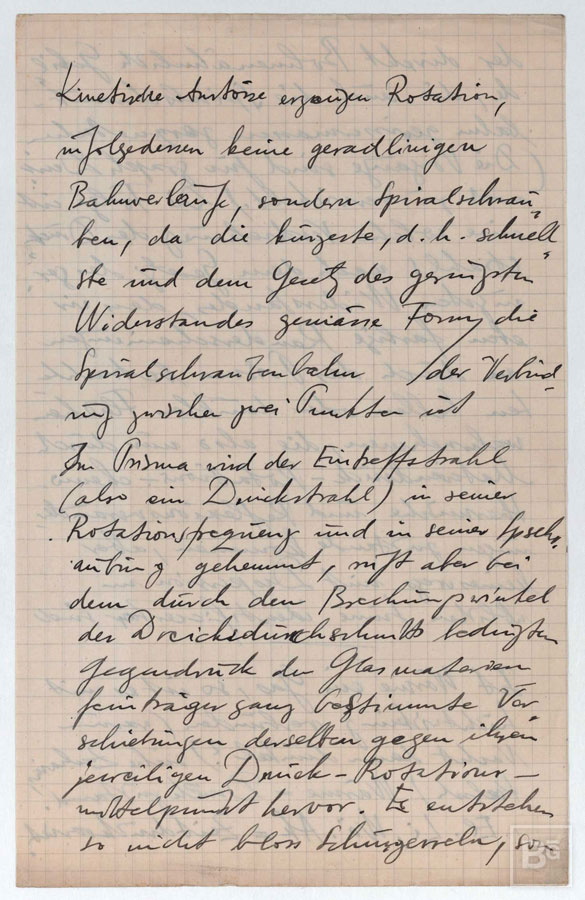 Kinetische Anstösse erzeugen Rotation,
infolgedessen keine geradlinigen
Bahnverläufe, sondern Spiralschrau-
ben, da die kürzeste, d. h. schnell-
ste und dem Gesetz des geringsten
Widerstandes gemässe Form die
Spiralschraubenbahn / der Verbind-
ung zwischen zwei Punkten ist
Im Prisma wird der Eintreffstrahl
(also ein Druckstrahl) in seiner
Rotationsfrequenz und in seiner
gehemmt, ruft aber bei
dem durch den Brechungswinkel
des Dreiecksdurchschnitts bedingten
Gegendruck der Glasmaterien
feinträger ganz bestimmte Ver-
schiebungen derselben gegen ihren
jeweiligen Druck-Rotations-
mittelpunkt hervor. Es entstehen
so nicht bloss son-
BG